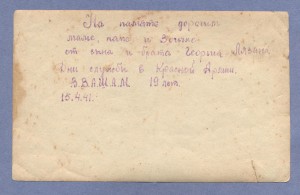 На память дорогим
маме, папе и Зочьке
от сына и брата Георгия
Дни службы в Красной Армии.
В.В.А.Ш.А.М. 19 лет.
15.4.41.